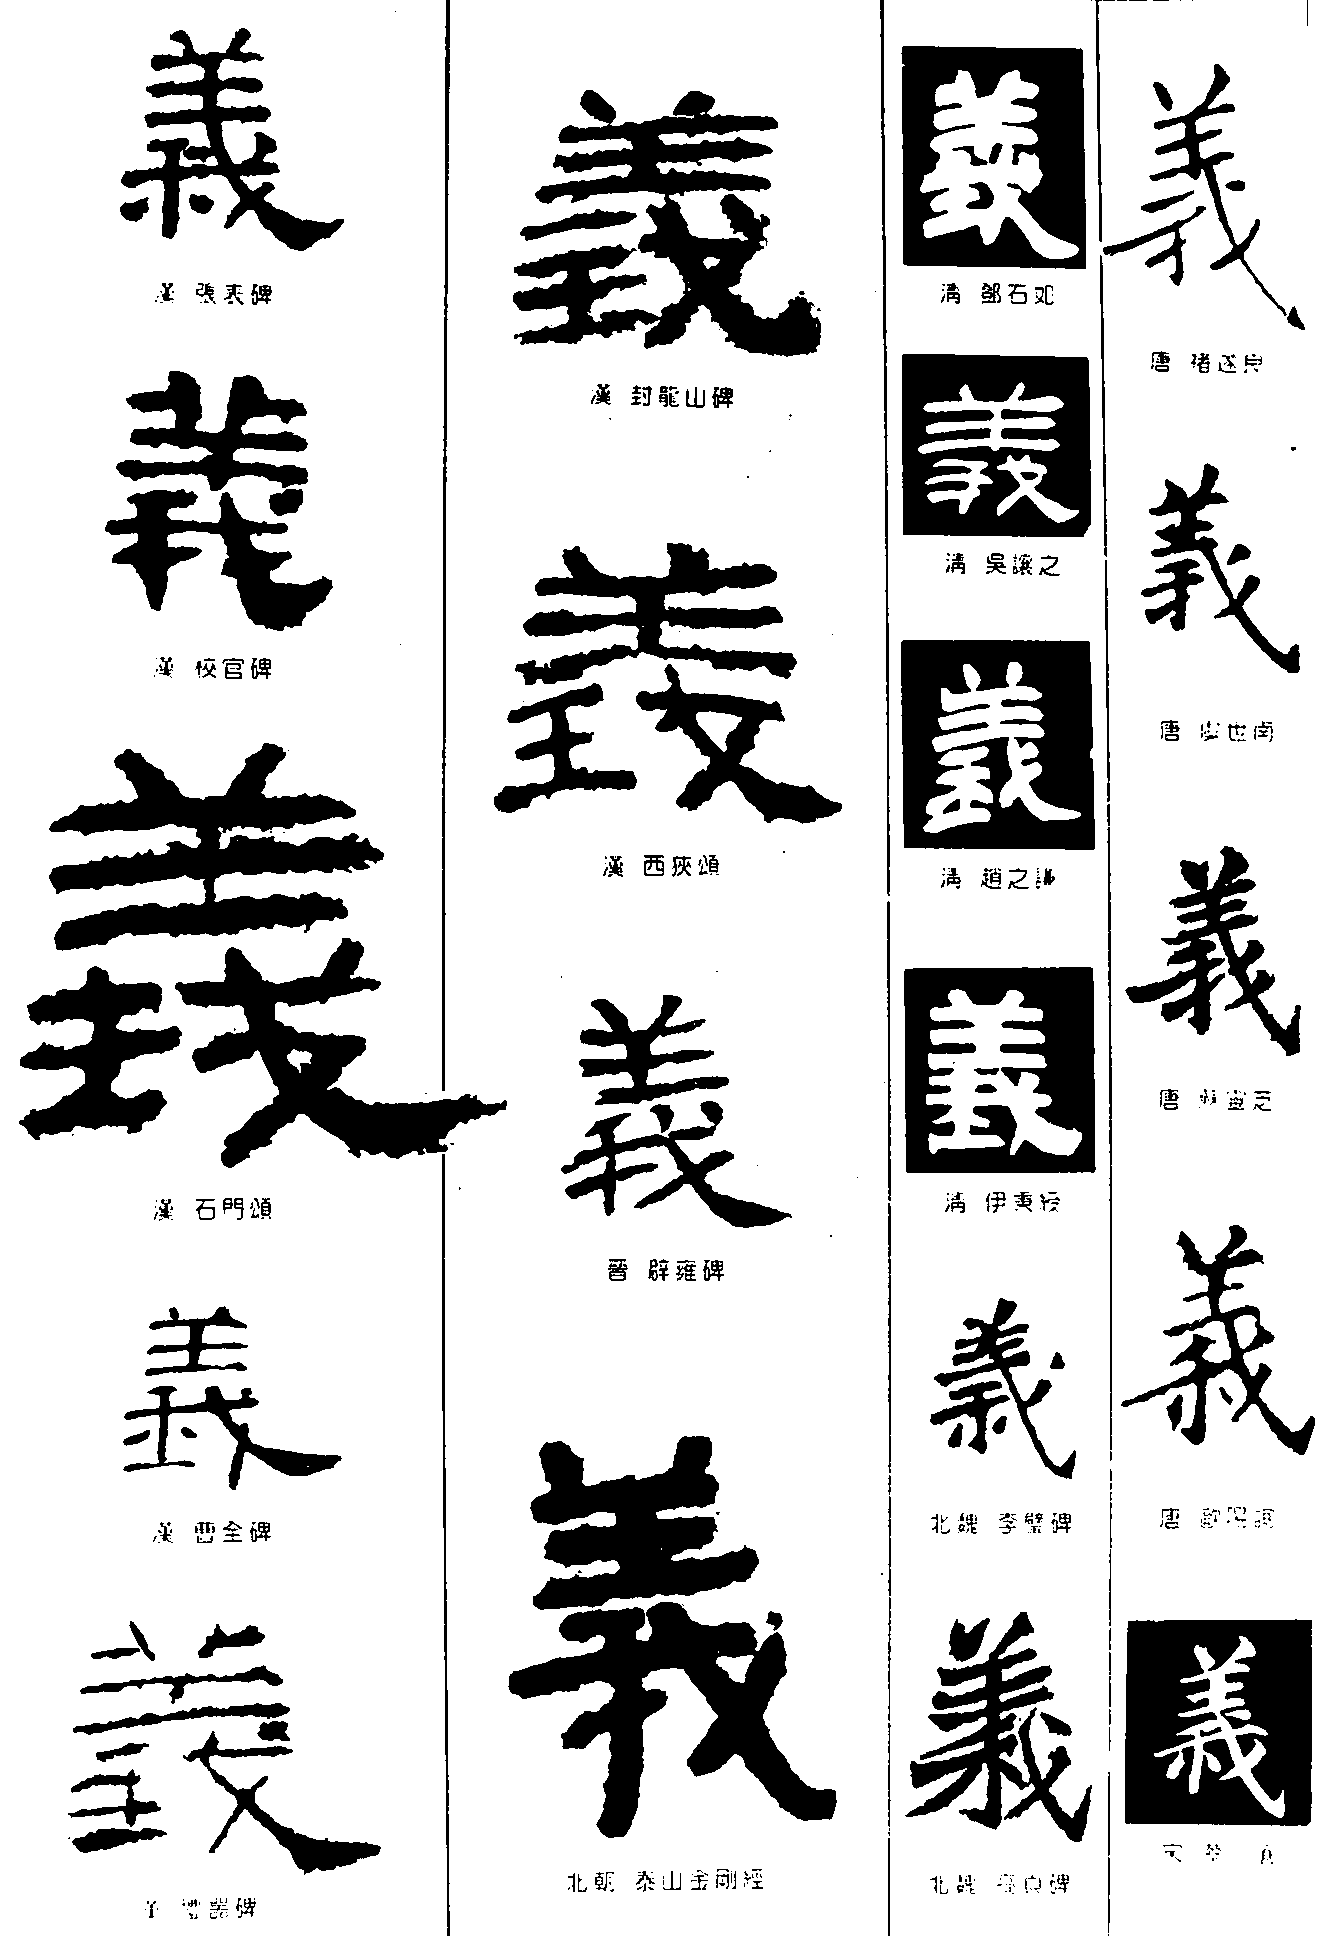 義
漢 張表碑
義
漢 校官碑
義
漢 石門頌
義
漢 曹全碑
義
禮器碑
義
漢 封龍山碑
義
漢 西狹頌
義
晉 辟雍碑
義
北朝 泰山金剛經
義
清 鄧石如
義
清 吳讓之
義
清 趙之謙
義
清 伊秉綬
義
北魏 李璧碑
義
北魏
碑
義
唐 褚遂良
義
唐 虞世南
義
唐
義
唐 歐陽詢
義